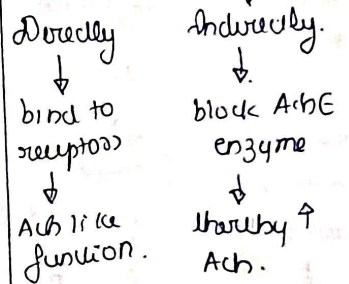 Direclly
↓
bind to
receptors
↓
Ach like
function.
Indirectly.
↓
block AchE
enzyme
↓
thereby ↑
Ach.